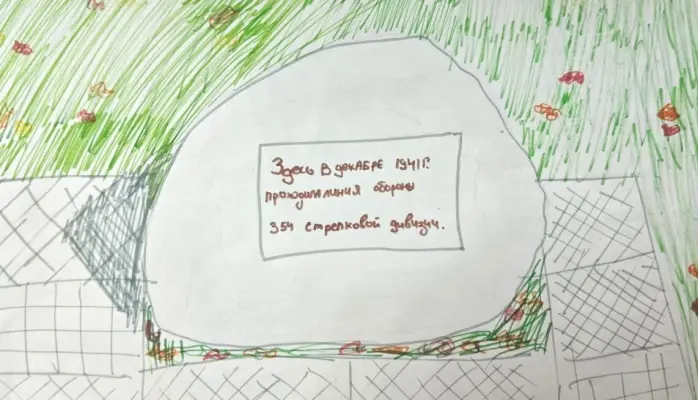 Здесь в декабре 1941г.
проходила линия обороны
354 стрелковой дивизии.